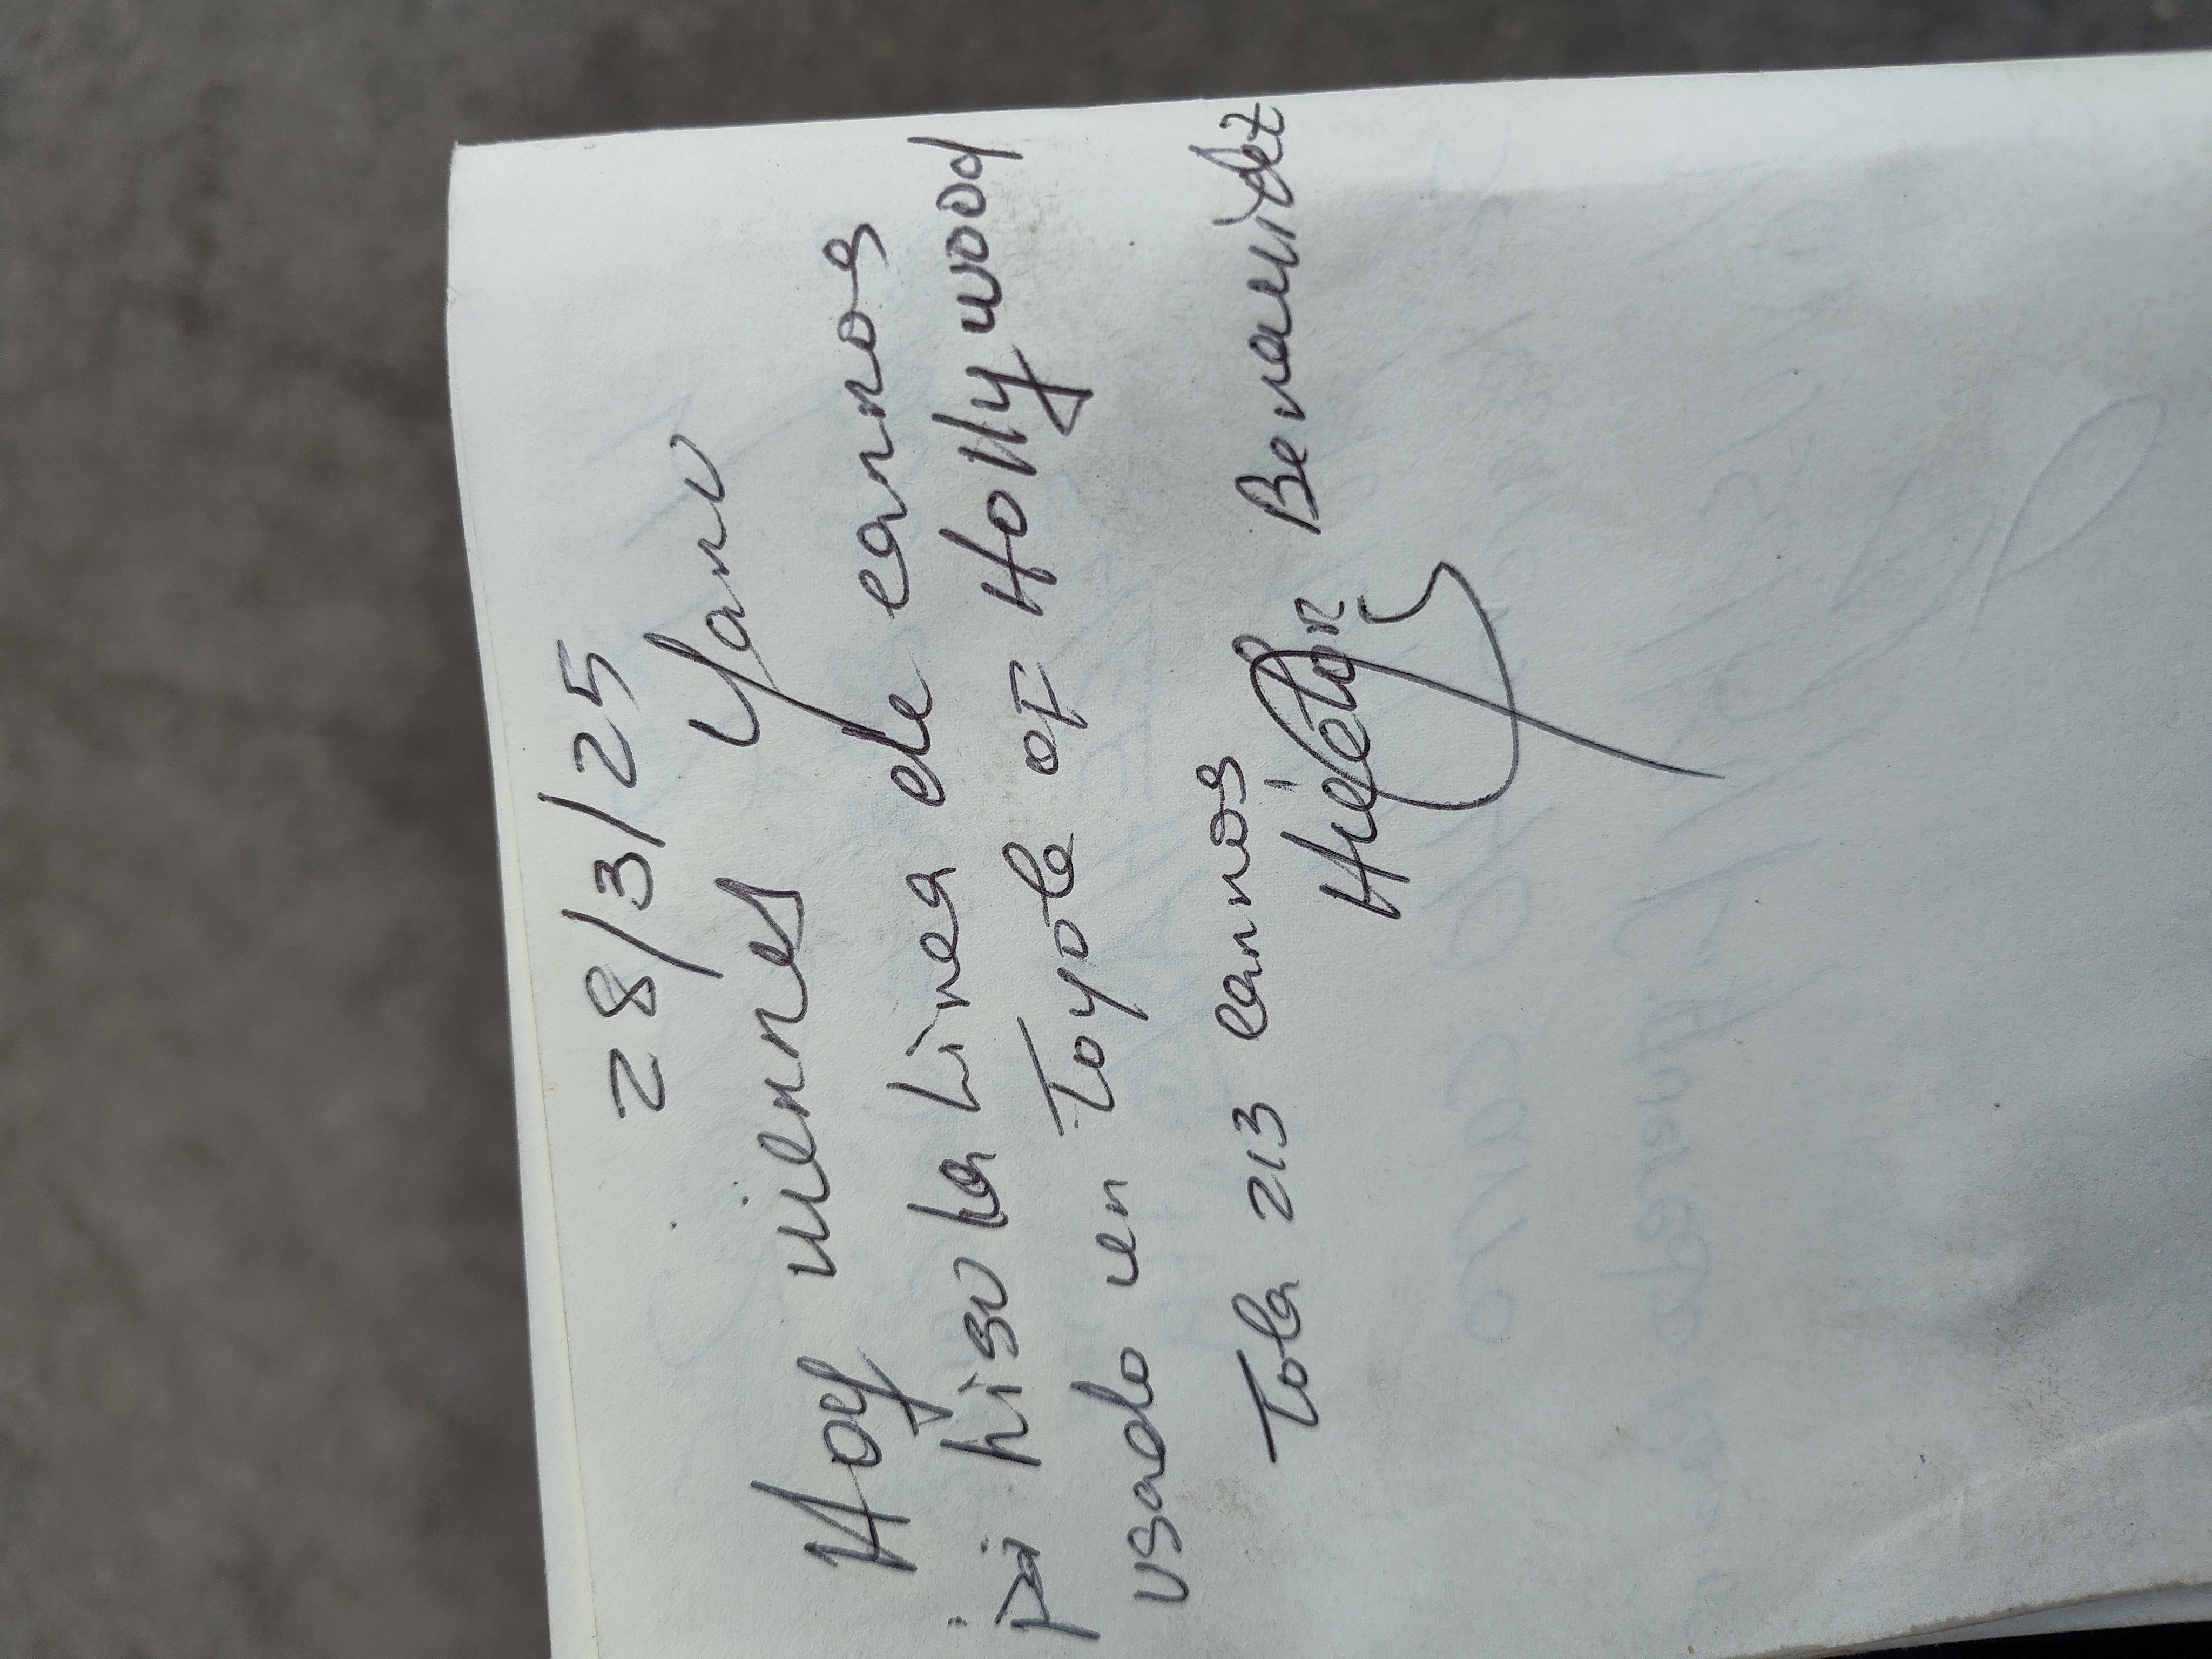 28/3/25
Hoy viernes Yano
pi hiso la Linea de carros
usado en Toyota OF Hollywood
Tota 213 carros
Benavidez